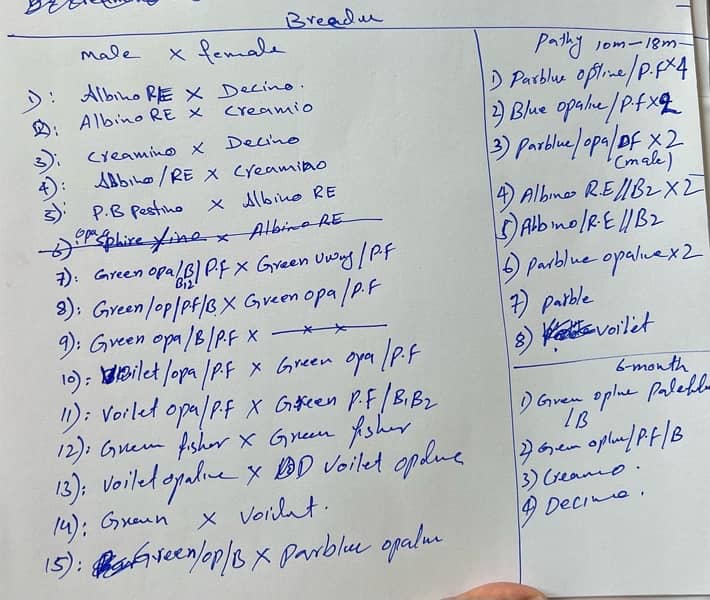 Breader
male x female
1): Albino RE x Decino.
2): Albino RE x Creamio
3): Creamino x Decino
4): Albino/RE x Creamino
5): P.B Pastino x Albino RE
6): opa Sphire/ino x Albino RE
7): Green opa/B/P.F x Green /P.F
B1,2
8): Green/op/PF/B x Green opa/P.F
9): Green opa/B/P.F x
10): Voilet/opa/P.F x Green opa/P.F
11): Voilet opa/P.F x Green P.F/B1B2
12): Green fisher x Green fisher
13): Voilet opaline x DD Voilet opaline
14): Green x Voilet.
15): Green/op/B x Parblue opaline
Pathy 10m-18m
1) Parblue opline/P.F x 4
2) Blue opaline/P.f x 2
3) Parblue/opa/DF x 2
(male)
4) Albino R.E//B2 x 2
5) Albino/R.E//B2
6) Parblue opaline x 2
7) Parble
8) voilet
6-month
1) Green opline
/B
2) Green opline/P.F/B
3) Creamo.
4) Decino.